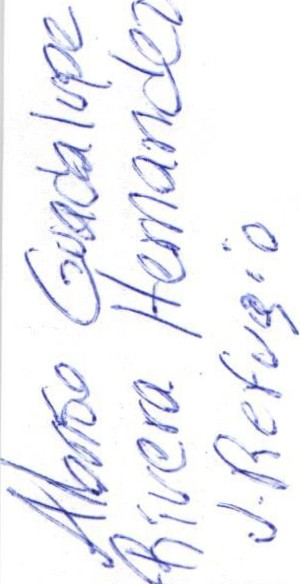 Alonso Guadalupe
Rivera Hernandez
J. Refugio